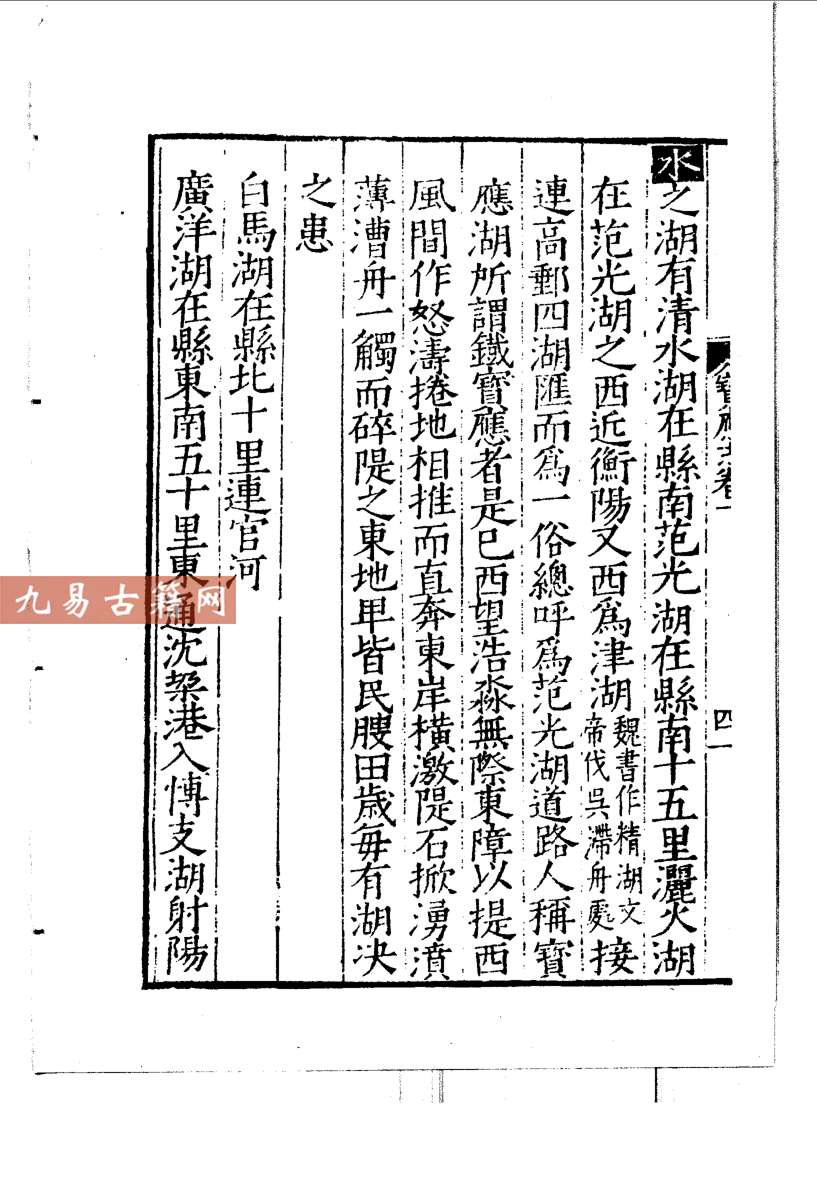 水之湖有清水湖在縣南范光湖在縣南十五里灑火湖
在范光湖之西近衡陽又西爲津湖魏書作精湖文帝伐吳滯舟處接
連高郵四湖匯而爲一俗總呼爲范光湖道路人稱寳
應湖所謂鐵寳應者是已西望浩淼無際東障以提西
風間作怒濤捲地相推而直奔東岸橫激隄石掀湧濆
薄漕舟一觸而碎隄之東地卑皆民腴田歳每有湖决
之患
白馬湖在縣北十里連官河
廣洋湖在縣東南五十里東通沈𣓪港入博支湖射陽
九易古籍网